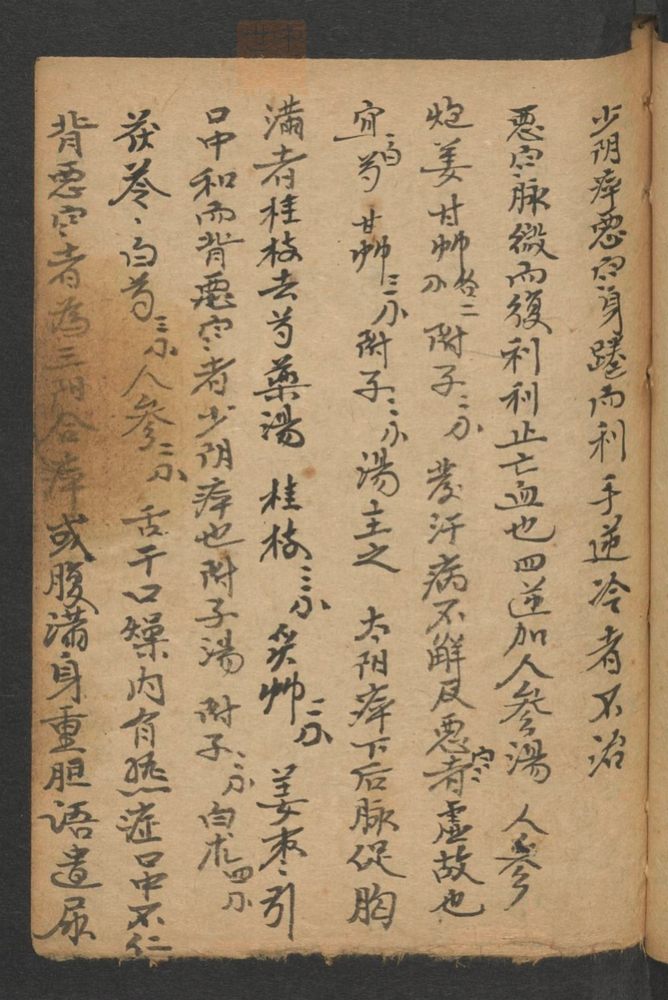 少阴痒恶㓋身踡而利手逆冷者不治
恶㓋脉微而復利利止亡血也四逆加人参湯 人参
炮姜甘艸各二分附子三分 發汗病不解反恶寒者虚故也
宜白芍甘艸三分附子二分湯主之 太阳痒下后脉促胸
满者桂枝去芍藥湯 桂枝三分 炙艸二分 姜枣引
口中和而背恶寒者少阴痒也附子湯 附子二分 白术四分
茯苓、白芍三分人参二分 舌干口燥内有热症口中不仁
背恶寒者為三阳合痒或腹满身重胆语遺尿